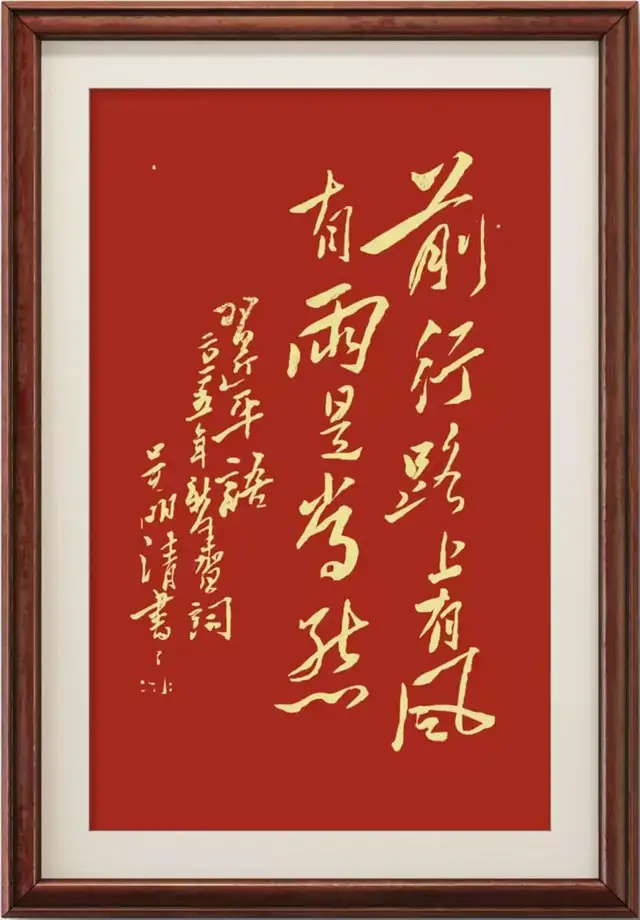 前行路上有风
有雨是常然
习近平语
二〇二五年新年贺词
吴明清书